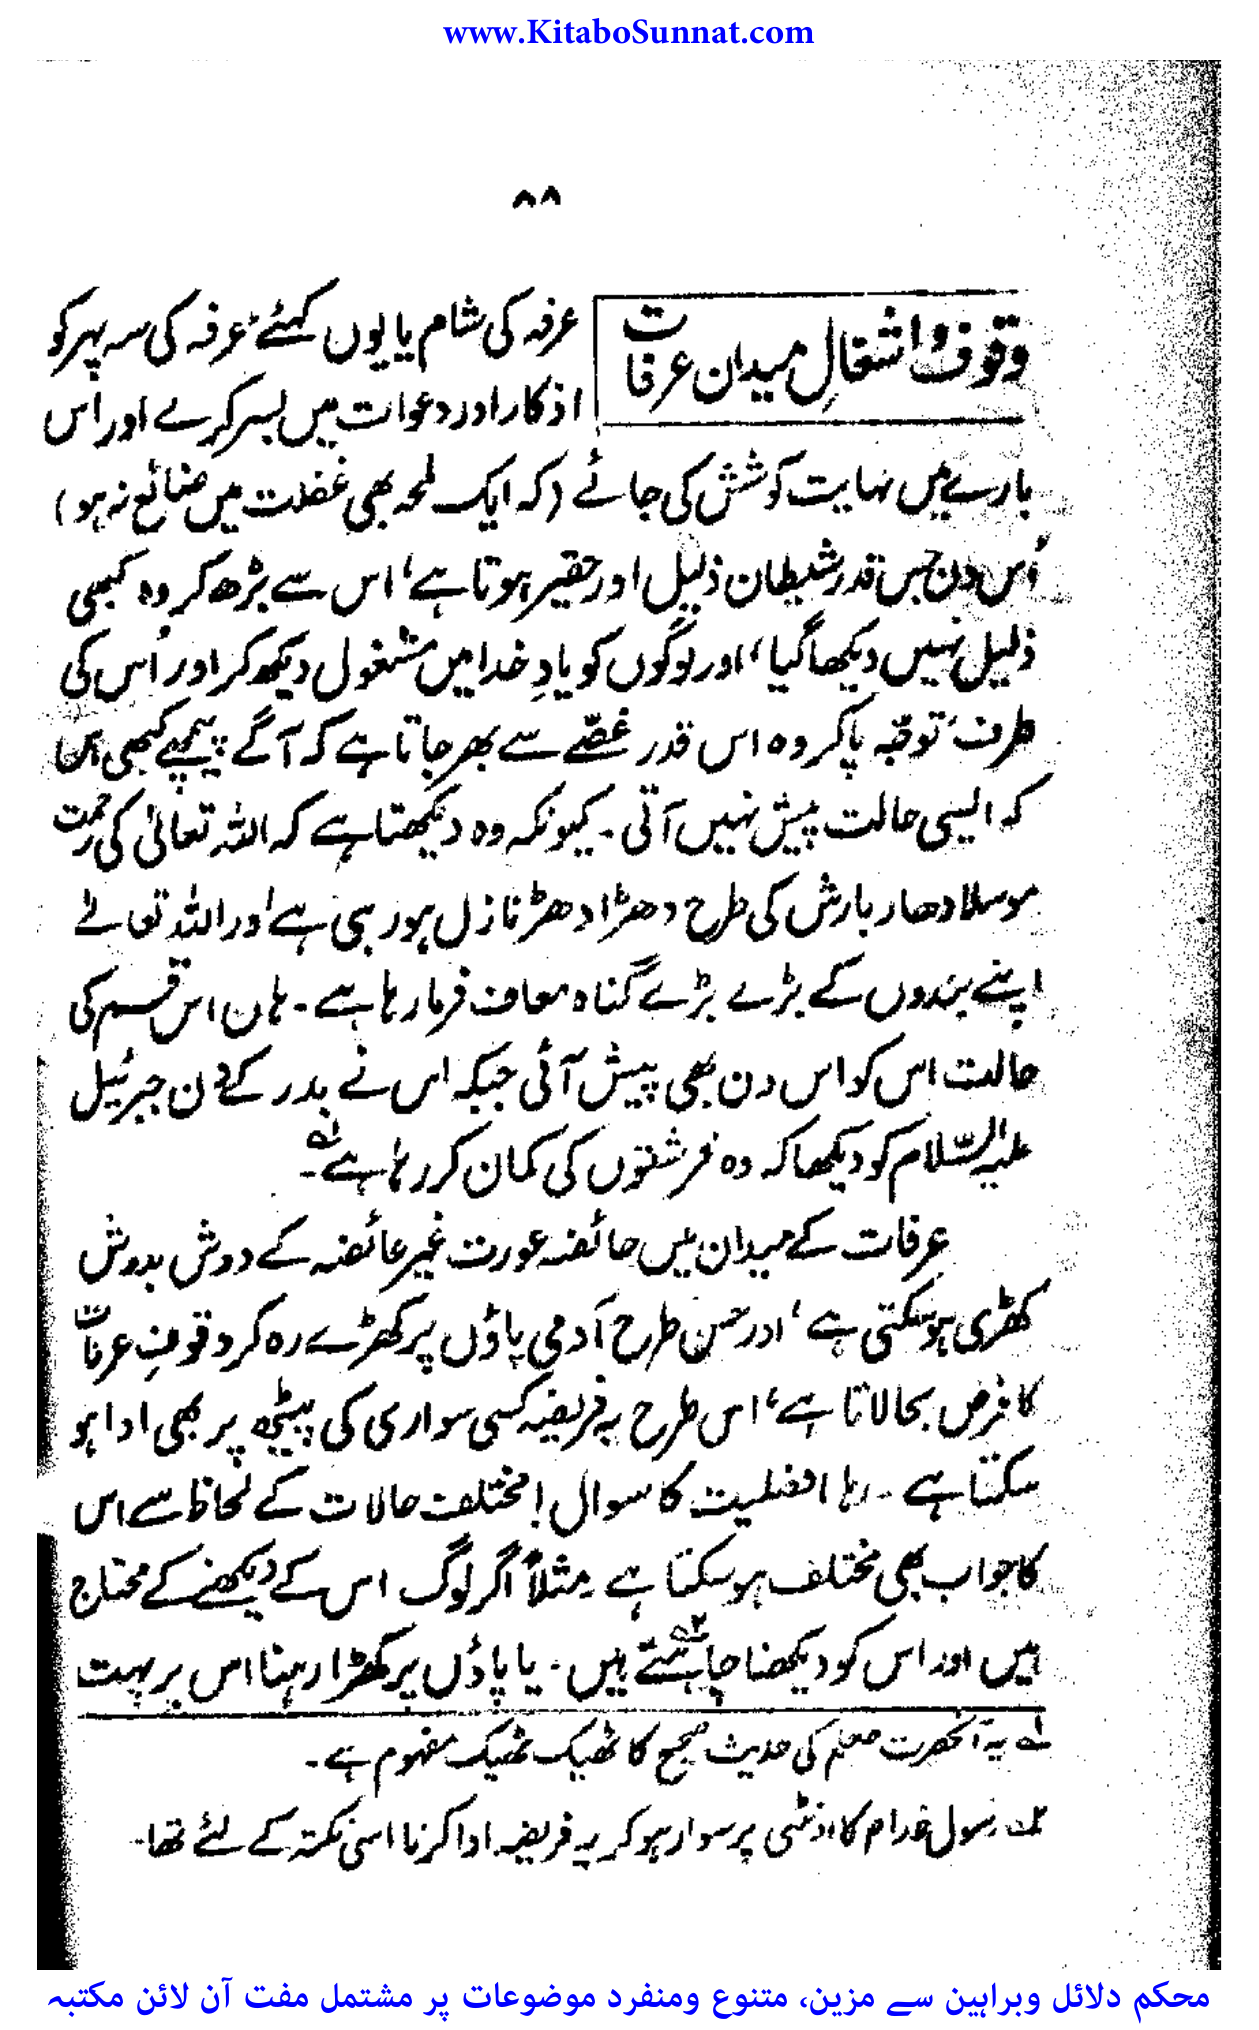 www.KitaboSunnat.com
۸۸
وقوف و اشغالِ میدان عرفات
عرفہ کی شام یا یوں کہئے عرفہ کی سہ پہر کو
اذکار اور دعوات میں بسر کرے اور اس
بارے میں نہایت کوشش کی جائے (کہ ایک لمحہ بھی غفلت میں ضائع نہ ہو)
اُس دن جس قدر شیطان ذلیل اور حقیر ہوتا ہے، اس سے بڑھ کر وہ کبھی
ذلیل نہیں دیکھا گیا، اور لوگوں کو یادِ خدا میں مشغول دیکھ کر اور اُس کی
طرف توجّہ پاکر وہ اس قدر غصّے سے بھر جاتا ہے کہ آگے پیچھے کبھی اس
کہ ایسی حالت پیش نہیں آتی ۔ کیونکہ وہ دیکھتا ہے کہ اللہ تعالیٰ کی رحمت
موسلادھار بارش کی طرح دھڑا دھڑ نازل ہو رہی ہے اور اللہ تعالےٰ
اپنے بندوں کے بڑے بڑے گناہ معاف فرما رہا ہے ۔ ہاں اس قسم کی
حالت اس کو اس دن بھی پیش آئی جبکہ اس نے بدر کے دن جبرئیل
علیہ السّلام کو دیکھا کہ وہ فرشتوں کی کمان کر رہا ہے ۔ ۱؎
عرفات کے میدان میں حائضہ عورت غیر حائضہ کے دوش بدوش
کھڑی ہو سکتی ہے، اور جس طرح آدمی پاؤں پر کھڑے رہ کر وقوفِ عرفات
کا فرض بجا لاتا ہے، اس طرح یہ فریضہ کسی سواری کی پیٹھ پر بھی ادا ہو
سکتا ہے ۔ رہا افضلیت کا سوال! مختلف حالات کے لحاظ سے اس
کا جواب بھی مختلف ہو سکتا ہے مثلاً اگر لوگ اس کے دیکھنے کے محتاج
ہیں اور اس کو دیکھنا چاہتے ہیں ۲؎ ۔ یا پاؤں پر کھڑا رہنا اس پر بہت
۱؎ یہ آنحضرت صلعم کی حدیث صحیح کا ٹھیک ٹھیک مفہوم ہے ۔
۲؎ رسول خدا م کا اونٹنی پر سوار ہو کر یہ فریضہ ادا کرنا اسی نکتہ کے لئے تھا۔
محکم دلائل وبراہین سے مزین، متنوع ومنفرد موضوعات پر مشتمل مفت آن لائن مکتبہ